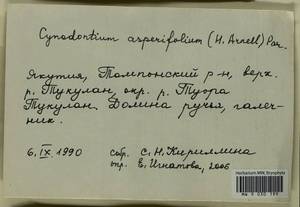 Cynodontium asperifolium (H. Arnell) Par.
Якутия, Томпонский р-н, верх.
р. Тукулан, окр. р. Туора
Тукулан. Долина ручья, галеч-
ник.
6. IX 1990 собр. С. Н. Кириллина
опр. Е. Игнатова, 2006
Herbarium MW, Bryophyta